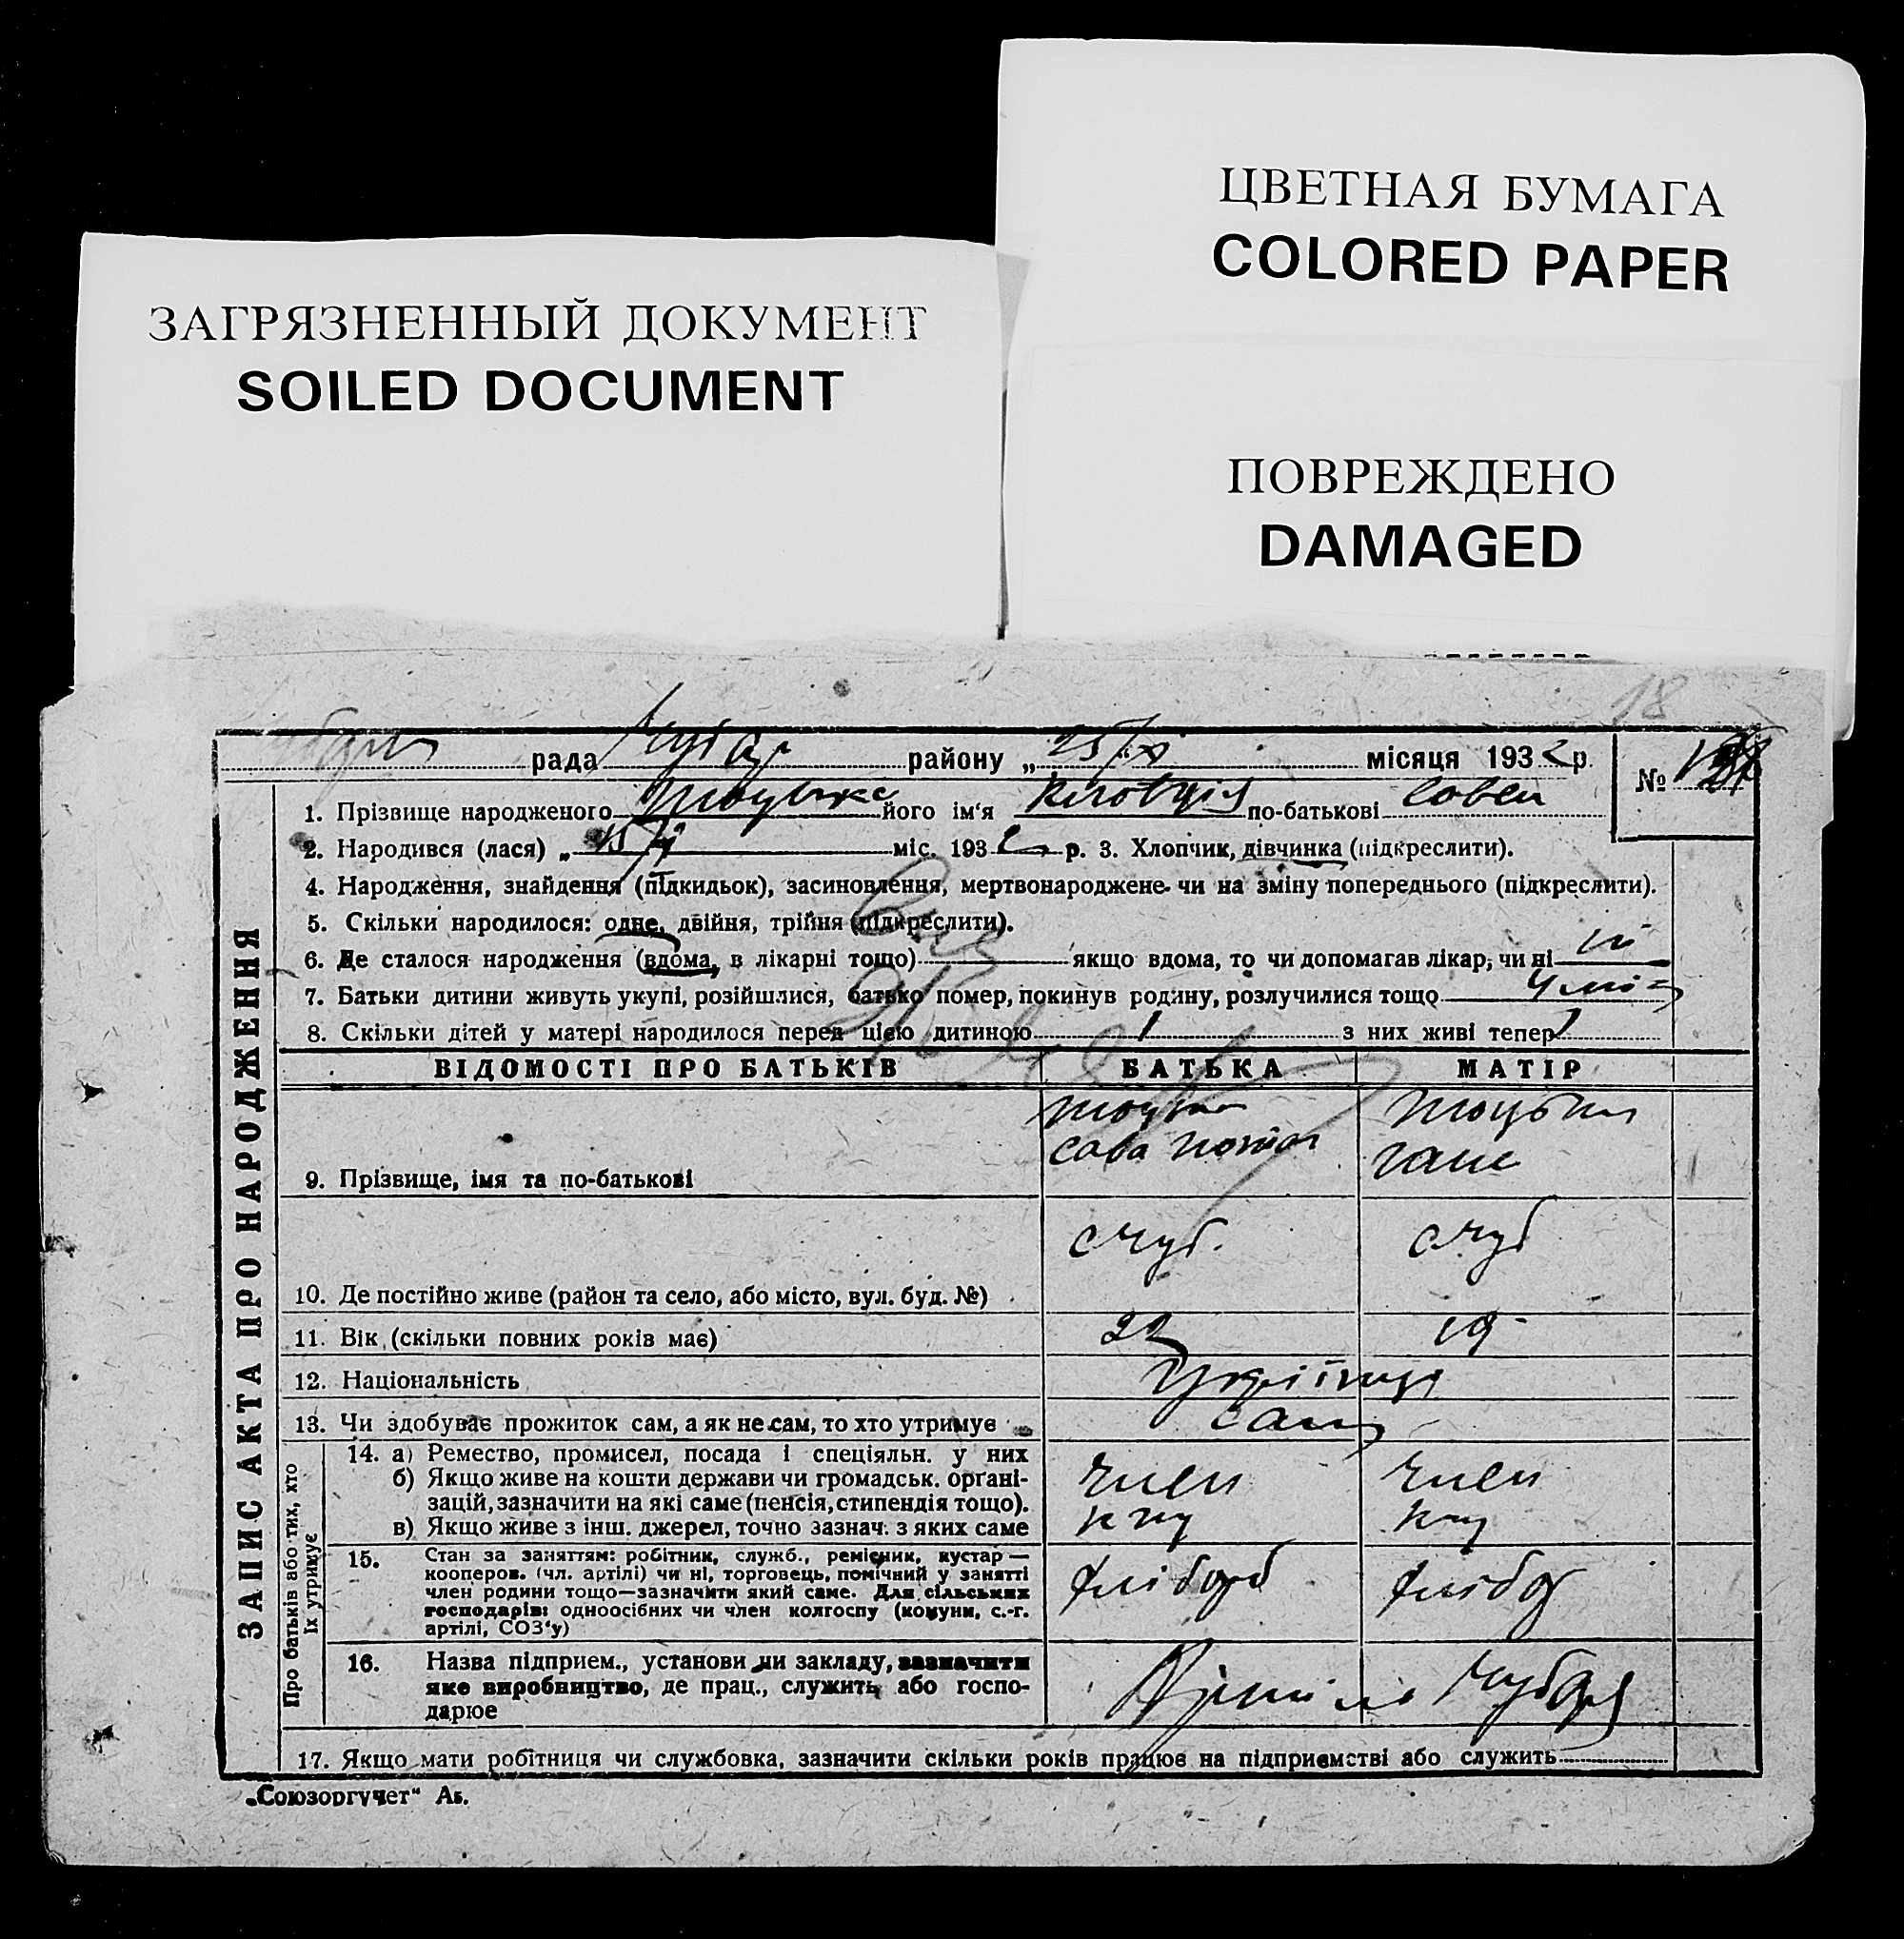 ЦВЕТНАЯ БУМАГА
COLORED PAPER
ЗАГРЯЗНЕННЫЙ ДОКУМЕНТ
SOILED DOCUMENT
ПОВРЕЖДЕНО
DAMAGED
18
рада району „25/XI місяця 1932 р. №
ЗАПИС АКТА ПРО НАРОДЖЕННЯ
1. Прізвище народженого його ім'я по-батькові Совен
2. Народився (лася) „ міс. 1932 р. 3. Хлопчик, дівчинка (підкреслити).
4. Народження, знайдення (підкидьок), засиновлення, мертвонароджене чи на зміну попереднього (підкреслити).
5. Скільки народилося: одне, двійня, трійня (підкреслити).
6. Де сталося народження (вдома, в лікарні тощо) якщо вдома, то чи допомагав лікар, чи ні ні
7. Батьки дитини живуть укупі, розійшлися, батько помер, покинув родину, розлучилися тощо
8. Скільки дітей у матері народилося перед цією дитиною 1 з них живі тепер 1
ВІДОМОСТІ ПРО БАТЬКІВ БАТЬКА МАТІР
Сава
9. Прізвище, імя та по-батькові
с чуб. с чуб
10. Де постійно живе (район та село, або місто, вул. буд. №)
11. Вік (скільки повних років має) 22 19
12. Національність Україниці
13. Чи здобуває прожиток сам, а як не сам, то хто утримує сами
Про батьків або тих, хто їх утримує
14. а) Ремество, промисел, посада і спеціяльн. у них
б) Якщо живе на кошти держави чи громадськ. органі-
зацій, зазначити на які саме (пенсія, стипендія тощо). член член
в) Якщо живе з інш. джерел, точно зазнач. з яких саме
15. Стан за заняттям: робітник, служб., ремісник, кустар —
кооперов. (чл. артілі) чи ні, торговець, помічний у занятті
член родини тощо—зазначити який саме. Для сільських
господарів: одноосібних чи член колгоспу (комуни, с.-г. хлібороб хлібор
артілі, СОЗ'у)
16. Назва підприєм., установи чи закладу, зазначити
яке виробництво, де прац., служить або госпо- Артіль Чубаря
дарює
17. Якщо мати робітниця чи службовка, зазначити скільки років працює на підприємстві або служить
„Союзоргучет" Аб.